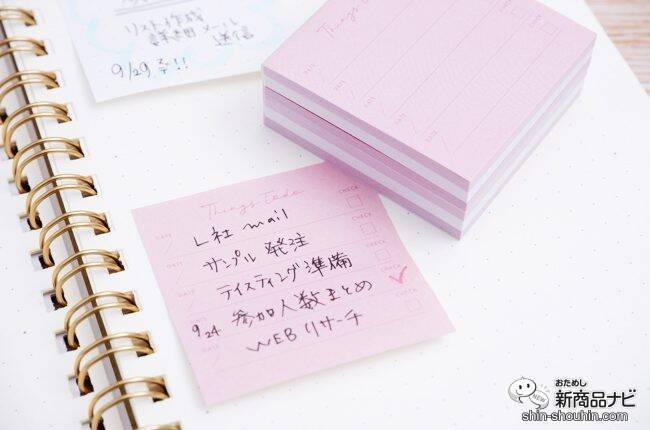 リスト作成
詳細メール
送信
9/29まで!!
Things To do
DATE
DATE
DATE
Things To do
CHECK
DATE
L社 mail
サンプル 発注
テイスティング準備
9/24 参加人数まとめ
WEBリサーチ
おためし
新商品ナビ
NEW
shin-shouhin.com